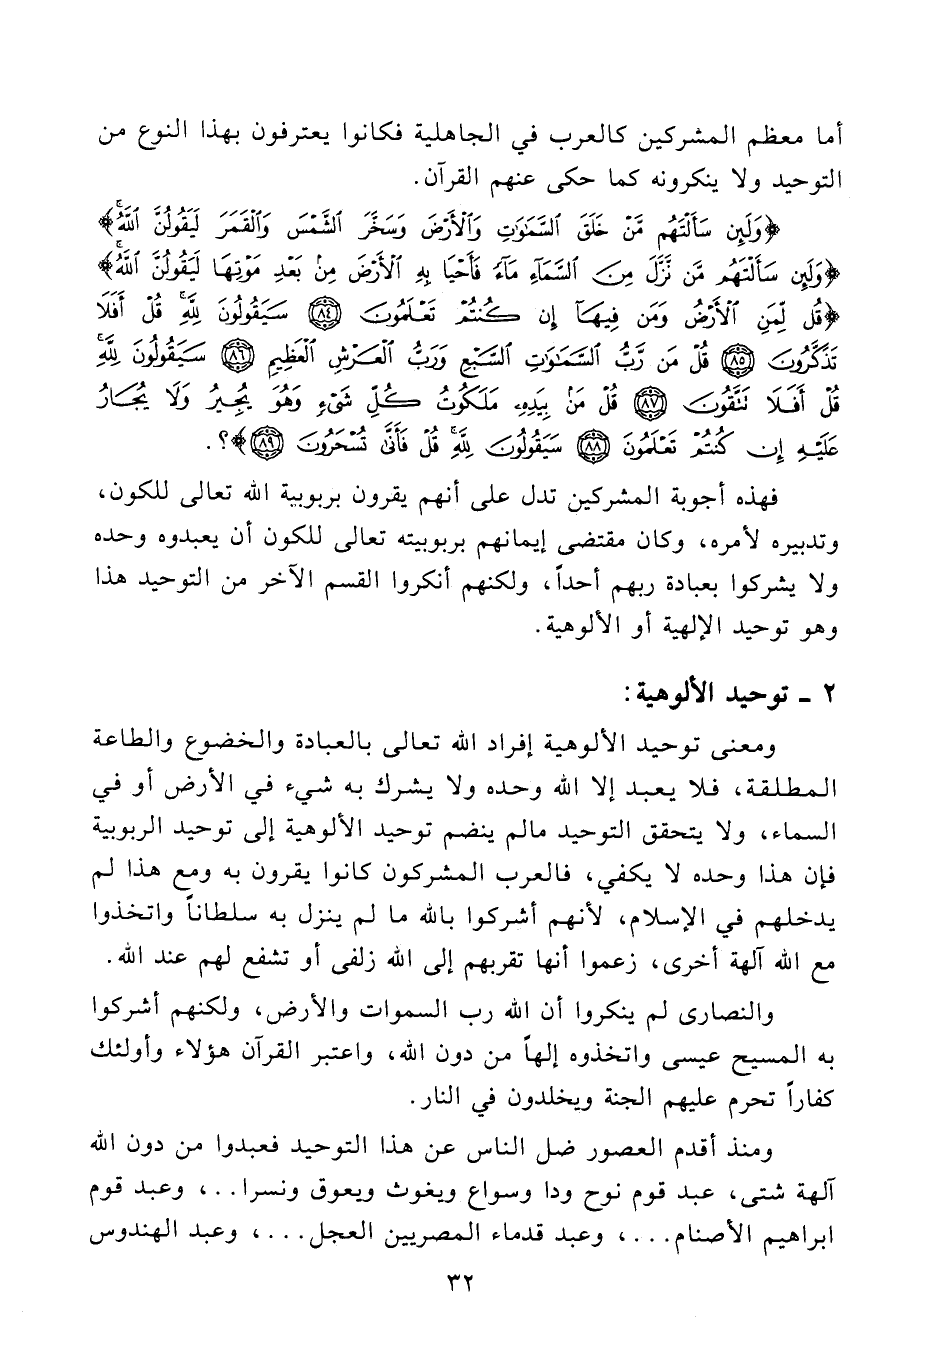 أما معظم المشركين كالعرب في الجاهلية فكانوا يعترفون بهذا النوع من
التوحيد ولا ينكرونه كما حكى عنهم القرآن.
﴿وَلَئِن سَأَلْتَهُم مَّنْ خَلَقَ ٱلسَّمَٰوَٰتِ وَٱلْأَرْضَ وَسَخَّرَ ٱلشَّمْسَ وَٱلْقَمَرَ لَيَقُولُنَّ ٱللَّهُ﴾
﴿وَلَئِن سَأَلْتَهُم مَّن نَّزَّلَ مِنَ ٱلسَّمَآءِ مَآءً فَأَحْيَا بِهِ ٱلْأَرْضَ مِنۢ بَعْدِ مَوْتِهَا لَيَقُولُنَّ ٱللَّهُ﴾
﴿قُل لِّمَنِ ٱلْأَرْضُ وَمَن فِيهَآ إِن كُنتُمْ تَعْلَمُونَ ٨٤ سَيَقُولُونَ لِلَّهِ ۚ قُلْ أَفَلَا
تَذَكَّرُونَ ٨٥ قُلْ مَن رَّبُّ ٱلسَّمَٰوَٰتِ ٱلسَّبْعِ وَرَبُّ ٱلْعَرْشِ ٱلْعَظِيمِ ٨٦ سَيَقُولُونَ لِلَّهِ ۚ
قُلْ أَفَلَا تَتَّقُونَ ٨٧ قُلْ مَنۢ بِيَدِهِۦ مَلَكُوتُ كُلِّ شَىْءٍ وَهُوَ يُجِيرُ وَلَا يُجَارُ
عَلَيْهِ إِن كُنتُمْ تَعْلَمُونَ ٨٨ سَيَقُولُونَ لِلَّهِ ۚ قُلْ فَأَنَّىٰ تُسْحَرُونَ ٨٩﴾؟.
فهذه أجوبة المشركين تدل على أنهم يقرون بربوبية الله تعالى للكون،
وتدبيره لأمره، وكان مقتضى إيمانهم بربوبيته تعالى للكون أن يعبدوه وحده
ولا يشركوا بعبادة ربهم أحداً، ولكنهم أنكروا القسم الآخر من التوحيد هذا
وهو توحيد الإلهية أو الألوهية.
٢ - توحيد الألوهية:
ومعنى توحيد الألوهية إفراد الله تعالى بالعبادة والخضوع والطاعة
المطلقة، فلا يعبد إلا الله وحده ولا يشرك به شيء في الأرض أو في
السماء، ولا يتحقق التوحيد مالم ينضم توحيد الألوهية إلى توحيد الربوبية
فإن هذا وحده لا يكفي، فالعرب المشركون كانوا يقرون به ومع هذا لم
يدخلهم في الإسلام، لأنهم أشركوا بالله ما لم ينزل به سلطاناً واتخذوا
مع الله آلهة أخرى، زعموا أنها تقربهم إلى الله زلفى أو تشفع لهم عند الله.
والنصارى لم ينكروا أن الله رب السموات والأرض، ولكنهم أشركوا
به المسيح عيسى واتخذوه إلهاً من دون الله، واعتبر القرآن هؤلاء وأولئك
كفاراً تحرم عليهم الجنة ويخلدون في النار.
ومنذ أقدم العصور ضل الناس عن هذا التوحيد فعبدوا من دون الله
آلهة شتى، عبد قوم نوح ودا وسواع ويغوث ويعوق ونسرا..، وعبد قوم
ابراهيم الأصنام...، وعبد قدماء المصريين العجل...، وعبد الهندوس
٣٢